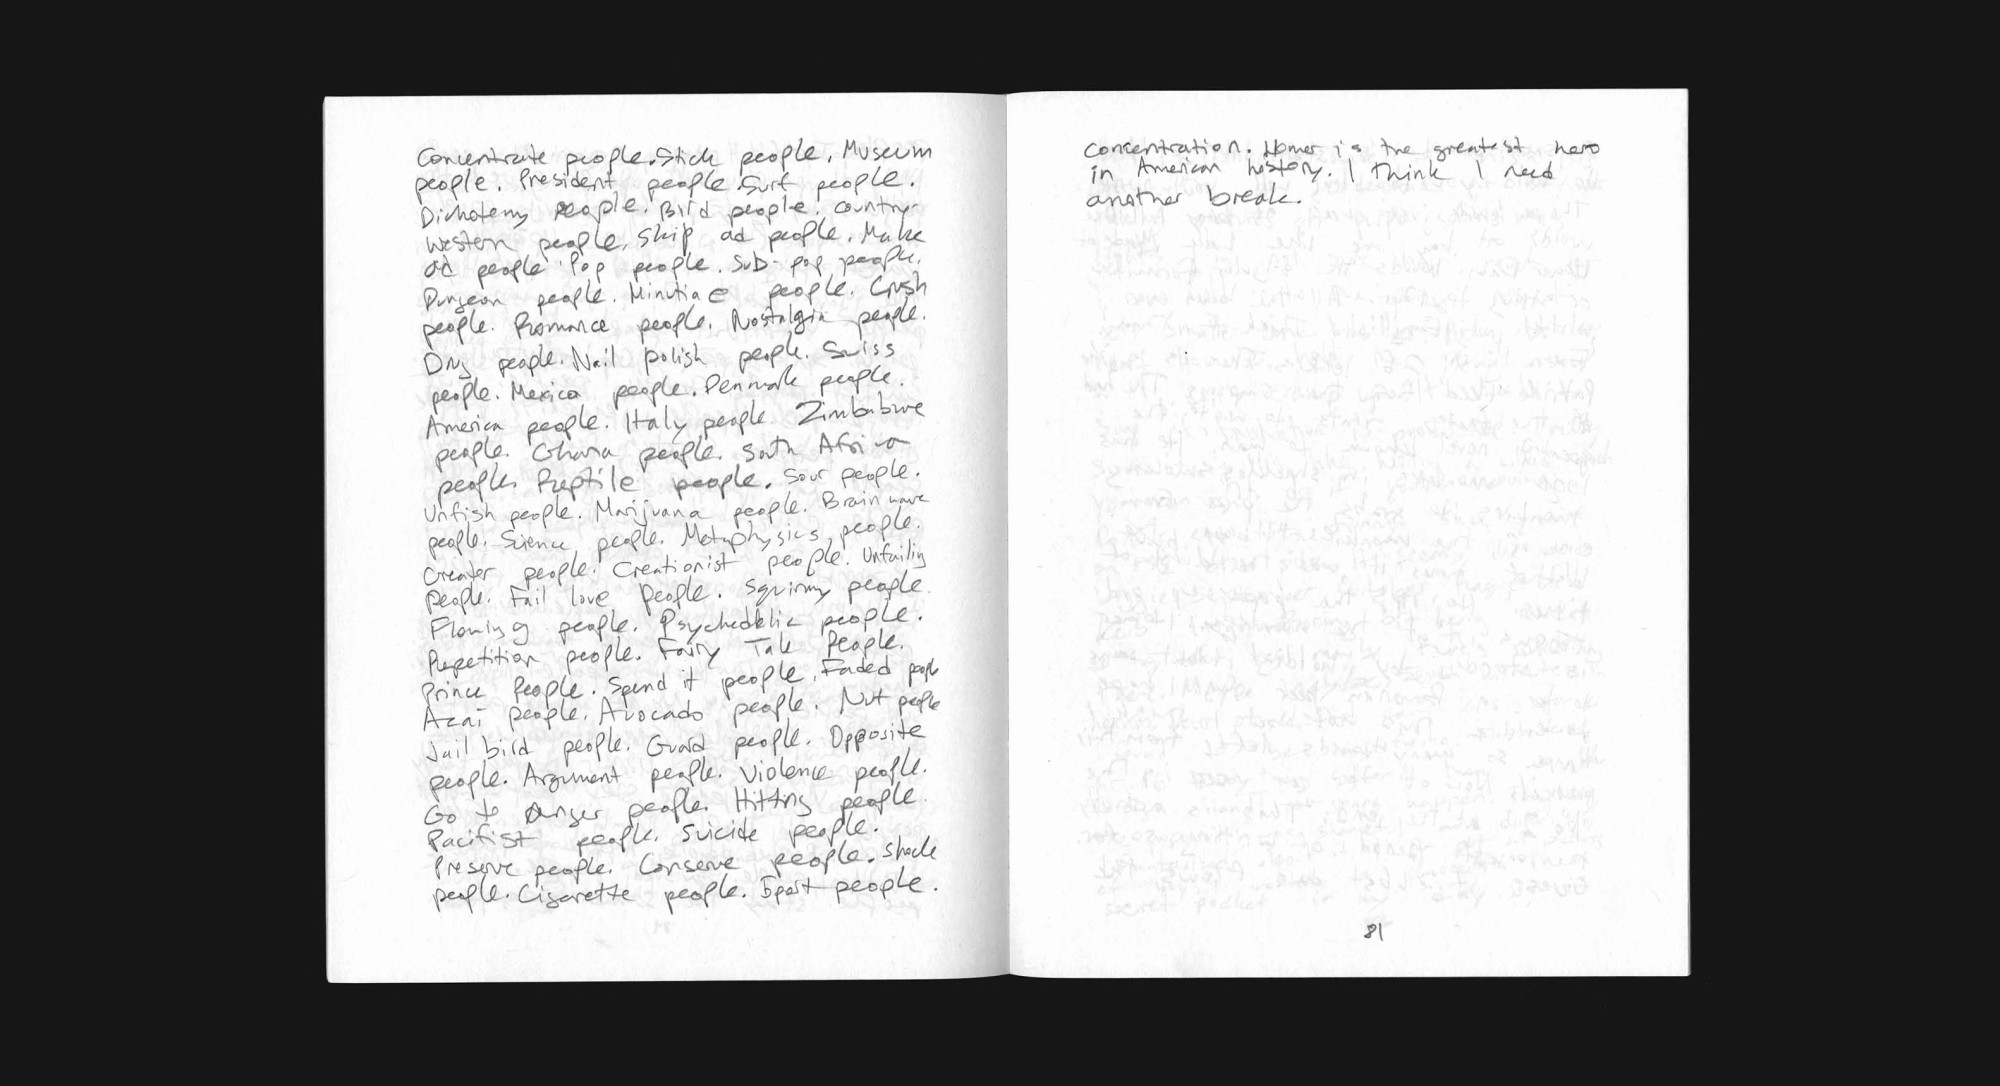 Concentrate people. Stick people. Museum
people. President people. Surf people.
Dichotemy people. Bird people. Country-
western people. Skip ad people. Make
ad people. Pop people. Sub-pop people.
people. Minutiae people. Crush
people. Romance people. Nostalgia people.
Dry people. Nail polish people. Swiss
people. Mexico people. Denmark people.
America people. Italy people. Zimbabwe
people. Ghana people. South Africa
people. Reptile people. Sour people.
Unfish people. Marijuana people. Brain wave
people. Science people. Metaphysics people.
Creater people. Creationist people. Unfailing
people. Fail love people. Squirmy people.
Flowing people. Psychedelic people.
Repetition people. Fairy Tale People.
Prince People. Spend it people. Faded people
Acai people. Avocado people. Nut people
Jail bird people. Guard people. Opposite
people. Argument people. Violence people.
Go to anger people. Hitting people.
Pacifist people. Suicide people.
Preserve people. Conserve people. Shock
people. Cigarette people. Sport people.
Concentration. Homer is the greatest hero
in American history. I think I need
another break.
81